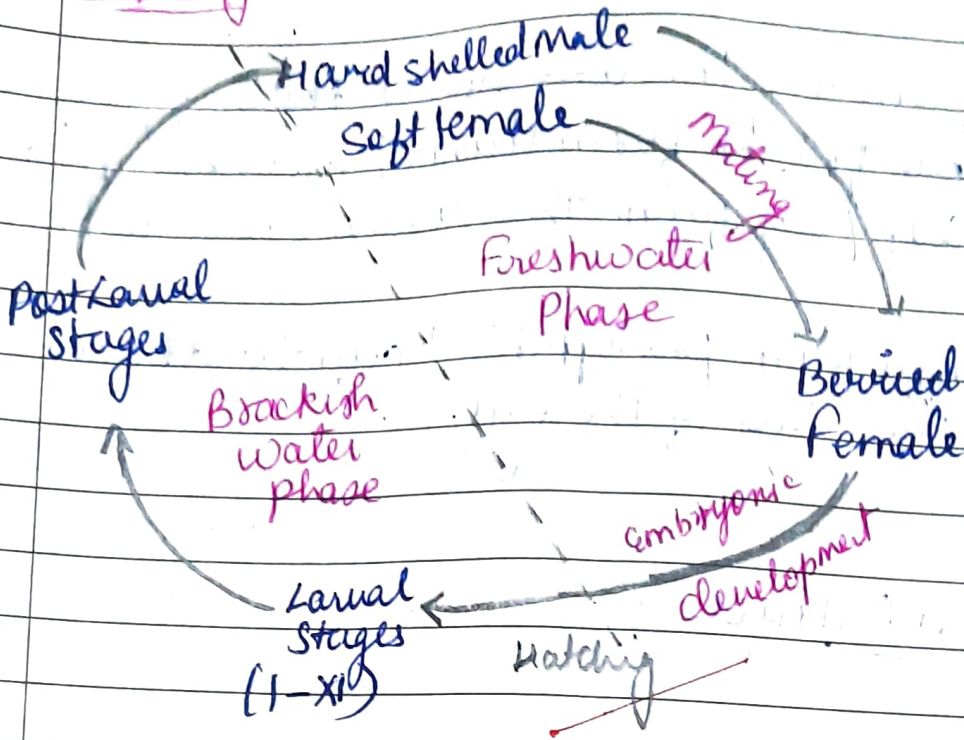 Hard shelled Male
Soft female
Mating
Freshwater
Phase
Post Larval
Stages
Berried
Female
Brackish
water
phase
embryonic
development
Larval
Stages
(I-XI)
Hatching